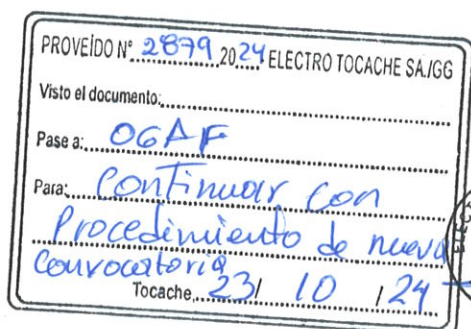 PROVEÍDO Nº 2879 2024 ELECTRO TOCACHE SA./GG
Visto el documento:
Pase a: OGAF
Para: Continuar con
Procedimiento de nueva
Convocatoria
Tocache, 23/ 10 /24